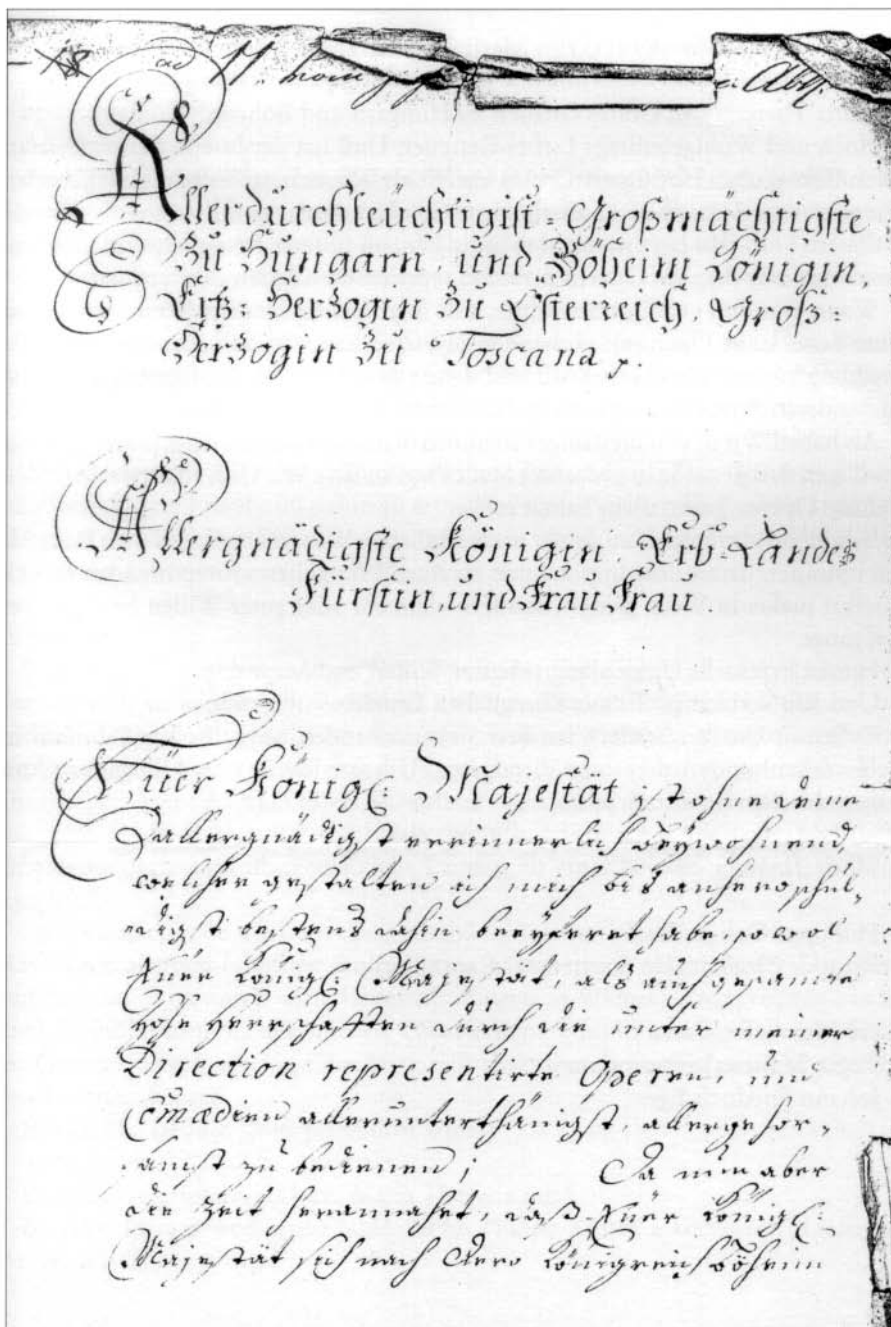 Allerdurchleüchtigist, Großmächtigste
Zu Hungarn, und Böheim Königin,
Ertz-Herzogin Zu Österreich, Groß-
Herzogin Zu Toscana
Allergnädigste Königin, Erb-Landes
Fürstin, und Frau Frau
Eüer Königl: Majestät ist ohne deme
allergnädigst errinnerlich beywohnend,
welcher gestalten ich mich bis anhero schul-
digst bestens dahin beeyferet habe, sowol
Eüer Königl: Majestät, als auch gesamte
hohe Herrschafften durch die unter meiner
Direction representirte Operen, und
Comœdien allerunterthänigst, allergehor-
samst zu bedienen; Da nun aber
die Zeit herannahet, daß Eüer Königl:
Majestät sich nach Dero Königreich Böheim